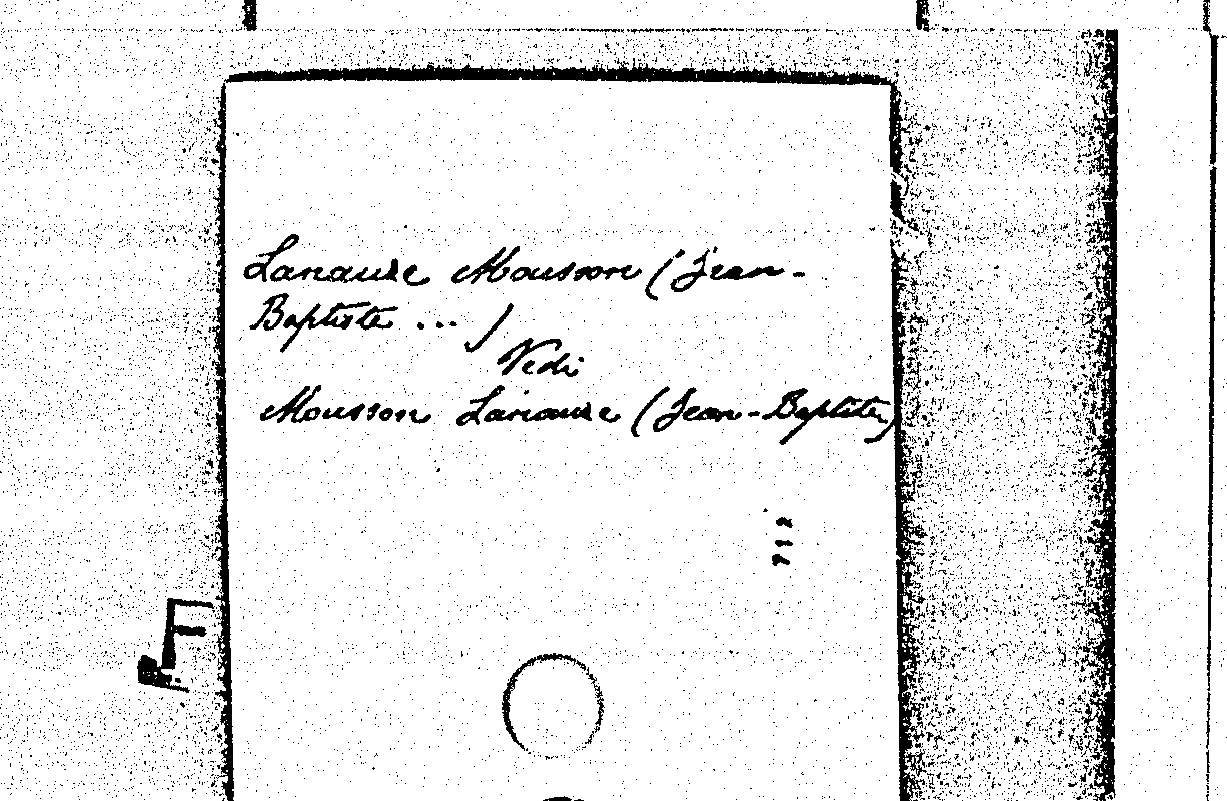 Lanauze Mousson (Jean-
Baptiste ... )
Vedi
Mousson Lanauze (Jean-Baptiste)
712
F